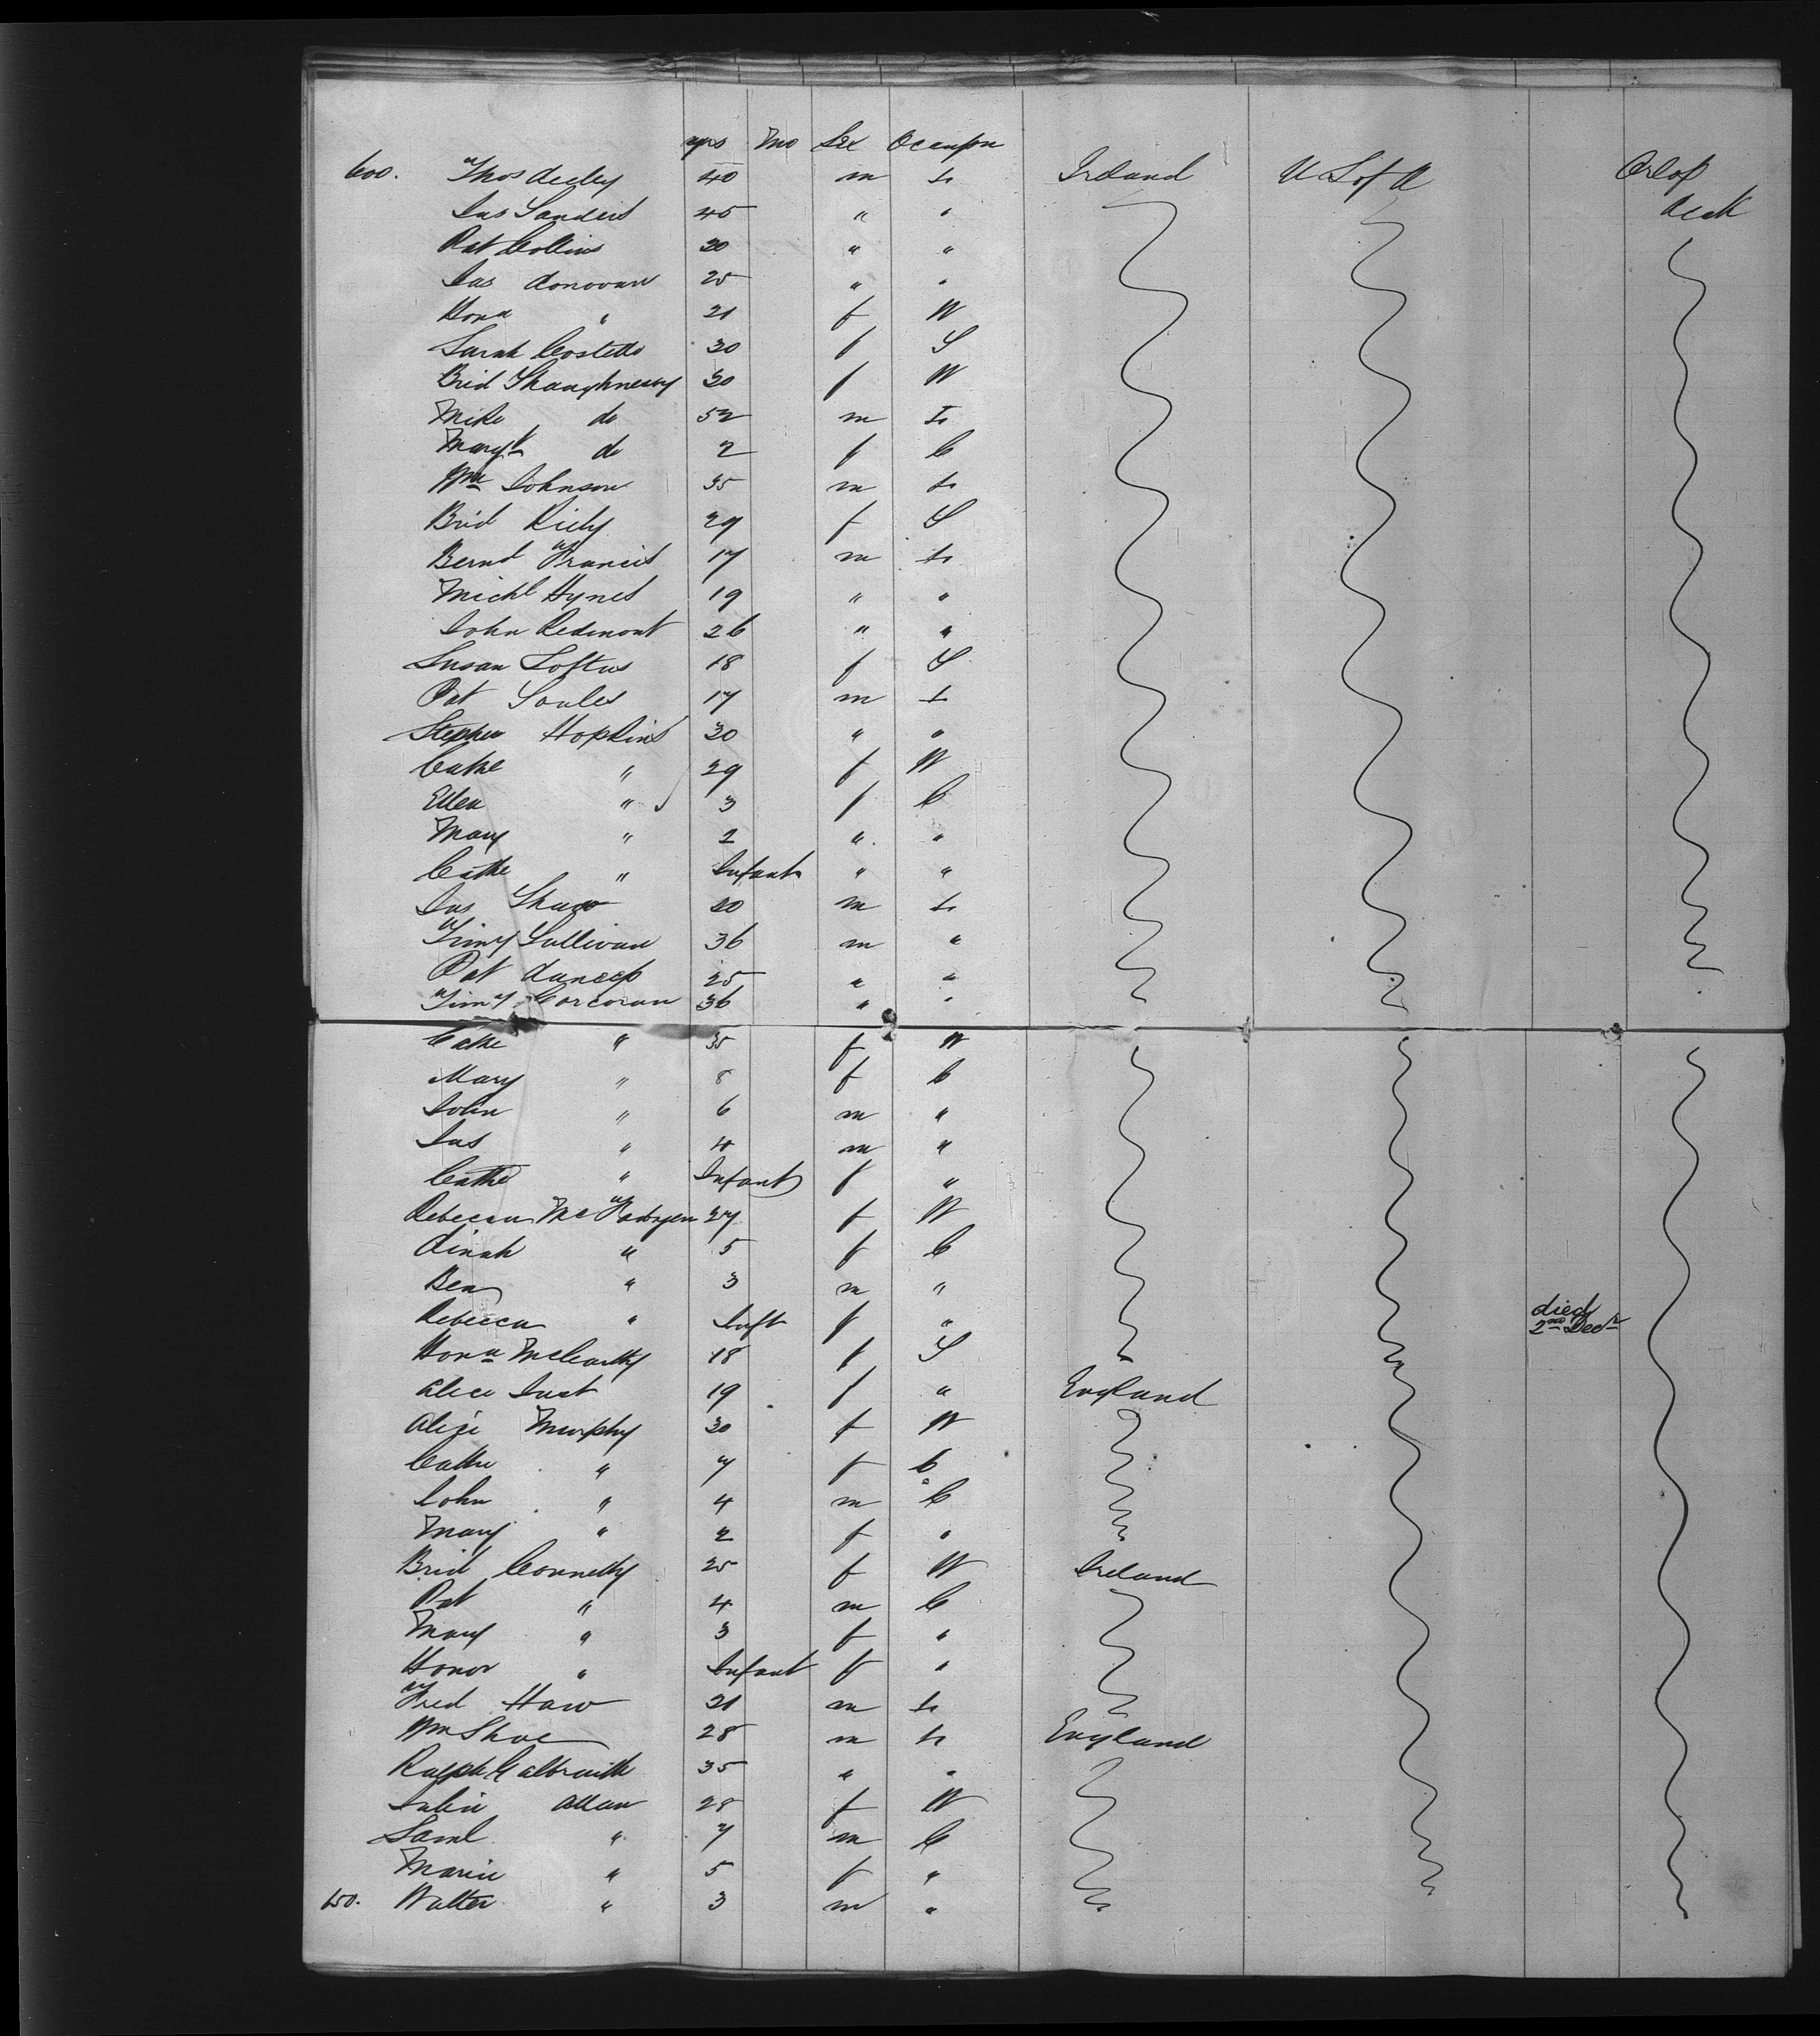 yrs Mo Sex Occupn
600. Thos Deeley 40 m Lr Ireland U S of A Orlop
Jas Sanders 45 " " deck
Pat Collins 20 " "
Jas Donovan 25 " "
Hona " 21 f W
Sarah Costello 30 f S
Brid Shaughnessy 30 f W
Mike do 52 m Lr
Margt do 2 f C
Wm Johnson 35 m Lr
Brid Kiely 29 f S
Bernd Francis 17 m Lr
Michl Hynes 19 " "
John Redmont 26 " "
Susan Loftus 18 f S
Pat Soules 17 m L
Stephen Hopkins 30 " "
Cathe " 29 f W
Ellen " 3 f C
Mary " 2 " "
Cathe " Infant " "
Jas Shaw 20 m Lr
Timy Sullivan 36 m "
Pat 25 " "
Timy Corcoran 36 " "
Cathe " 35 f W
Mary " 8 f C
John " 6 m "
Jas " 4 m "
Cathe " Infant f "
Rebecca 27 f W
Dinah " 5 f C
Ben " 3 m "
Rebecca " Inft f " died
2nd Decr
Hona McCarthy 18 f S
Alice Just 19 f " England
Alice Murphy 30 f W
Cathe " 7 f C
John " 4 m C
Mary " 2 f "
Brid Connelly 25 f W Ireland
Pat " 4 m C
Mary " 3 f "
Honor " Infant f "
Fred Haw 21 m Lr
Wm Shoe 28 m Lr England
Ralph Galbraith 35 " "
Julia Allan 28 f W
Saml " 7 m C
Maria " 5 f "
650. Walter " 3 m "